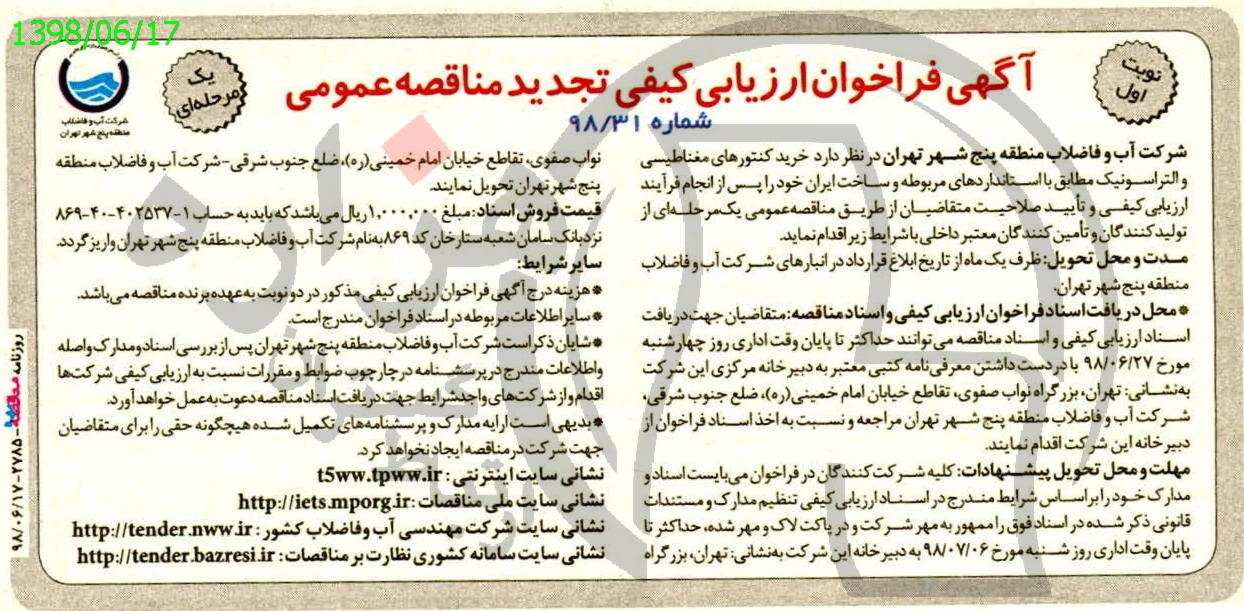 1398/06/17
شرکت آب و فاضلاب
منطقه پنج شهر تهران
یک
مرحله‌ای
آگهی فراخوان ارزیابی کیفی تجدید مناقصه عمومی
شماره ۹۸/۳۱
نوبت
اول
شرکت آب و فاضلاب منطقه پنج شهر تهران در نظر دارد خرید کنتورهای مغناطیسی
و التراسونیک مطابق با استانداردهای مربوطه و ساخت ایران خود را پس از انجام فرآیند
ارزیابی کیفی و تأیید صلاحیت متقاضیان از طریق مناقصه عمومی یک‌مرحله‌ای از
تولیدکنندگان و تأمین کنندگان معتبر داخلی با شرایط زیر اقدام نماید.
مدت و محل تحویل: ظرف یک ماه از تاریخ ابلاغ قرارداد در انبارهای شرکت آب و فاضلاب
منطقه پنج شهر تهران.
* محل دریافت اسناد فراخوان ارزیابی کیفی و اسناد مناقصه: متقاضیان جهت دریافت
اسناد ارزیابی کیفی و اسناد مناقصه می‌توانند حداکثر تا پایان وقت اداری روز چهارشنبه
مورخ ۹۸/۰۶/۲۷ با در دست داشتن معرفی‌نامه کتبی معتبر به دبیرخانه مرکزی این شرکت
به‌نشانی: تهران، بزرگراه نواب صفوی، تقاطع خیابان امام خمینی(ره)، ضلع جنوب شرقی،
شرکت آب و فاضلاب منطقه پنج شهر تهران مراجعه و نسبت به اخذ اسناد فراخوان از
دبیرخانه این شرکت اقدام نمایند.
مهلت و محل تحویل پیشنهادات: کلیه شرکت‌کنندگان در فراخوان می‌بایست اسناد و
مدارک خود را بر اساس شرایط مندرج در اسناد ارزیابی کیفی تنظیم مدارک و مستندات
قانونی ذکر شده در اسناد فوق را ممهور به مهر شرکت و در پاکت لاک و مهر شده، حداکثر تا
پایان وقت اداری روز شنبه مورخ ۹۸/۰۷/۰۶ به دبیرخانه این شرکت به‌نشانی: تهران، بزرگراه
نواب صفوی، تقاطع خیابان امام خمینی(ره)، ضلع جنوب شرقی-شرکت آب و فاضلاب منطقه
پنج شهر تهران تحویل نمایند.
قیمت فروش اسناد: مبلغ ۱,۰۰۰,۰۰۰ ریال می‌باشد که باید به حساب ۱-۴۰۲۵۳۷-۴۰-۸۶۹
نزد بانک سامان شعبه ستارخان کد ۸۶۹ به‌نام شرکت آب و فاضلاب منطقه پنج شهر تهران واریز گردد.
سایر شرایط:
* هزینه درج آگهی فراخوان ارزیابی کیفی مذکور در دو نوبت به‌عهده برنده مناقصه می‌باشد.
* سایر اطلاعات مربوطه در اسناد فراخوان مندرج است.
* شایان ذکر است شرکت آب و فاضلاب منطقه پنج شهر تهران پس از بررسی اسناد و مدارک واصله
و اطلاعات مندرج در پرسشنامه در چارچوب ضوابط و مقررات نسبت به ارزیابی کیفی شرکت‌ها
اقدام و از شرکت‌های واجد شرایط جهت دریافت اسناد مناقصه دعوت به‌عمل خواهد آورد.
* بدیهی است ارایه مدارک و پرسشنامه‌های تکمیل شده هیچگونه حقی را برای متقاضیان
جهت شرکت در مناقصه ایجاد نخواهد کرد.
نشانی سایت اینترنتی: t5ww.tpww.ir
نشانی سایت ملی مناقصات: http://iets.mporg.ir
نشانی سایت شرکت مهندسی آب وفاضلاب کشور: http://tender.nww.ir
نشانی سایت سامانه کشوری نظارت بر مناقصات: http://tender.bazresi.ir
روزنامه مناقصه - ۲۷۸۵ - ۹۸/۰۶/۱۷